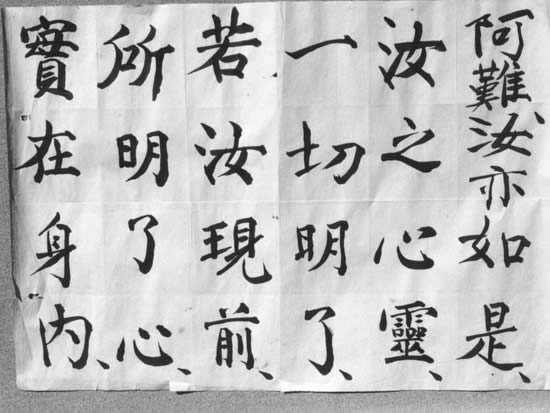 阿難汝亦如是、
汝之心靈、
一切明了、
若汝現前、
所明了心、
實在身內、